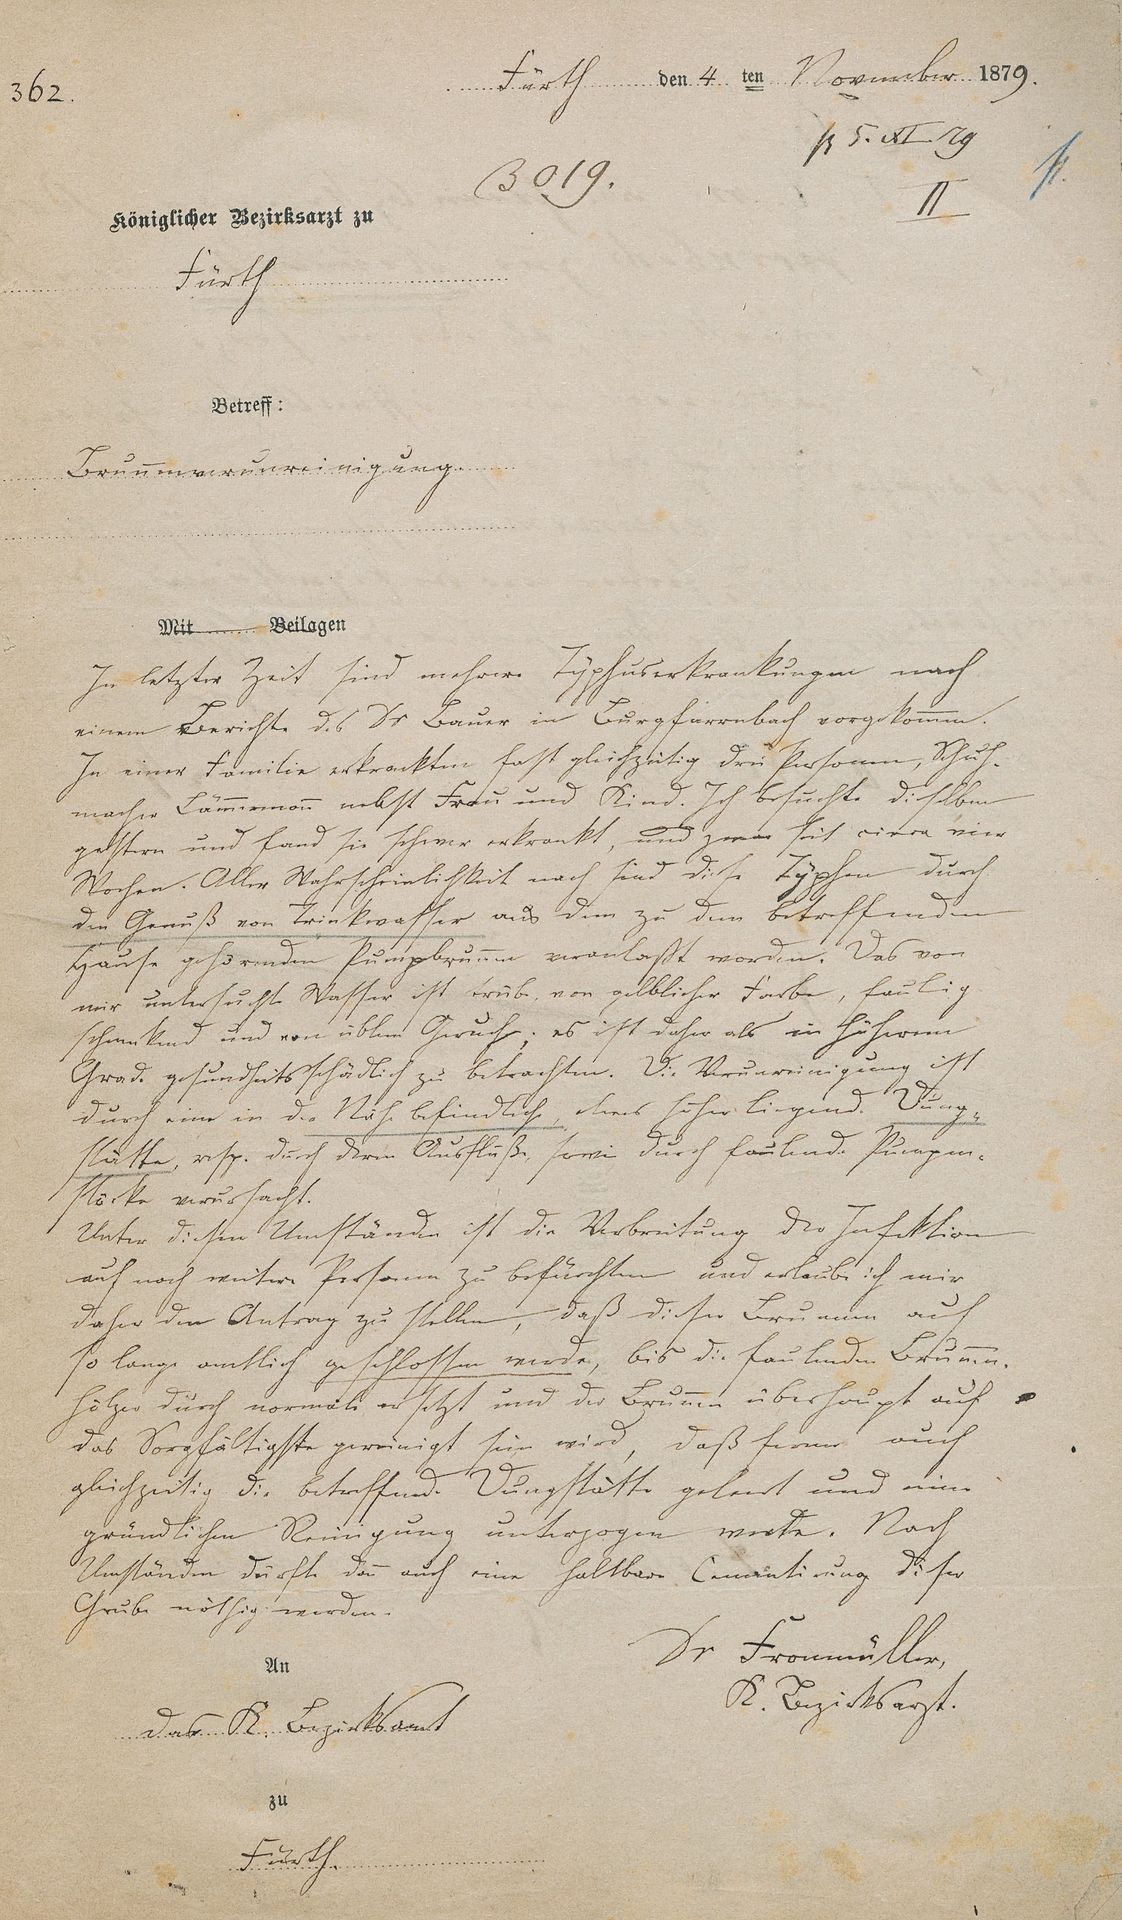 362.
Fürth den 4 ten November 1879.
5. XI. 79
3019.
II
Königlicher Bezirksarzt zu
Fürth
Betreff:
Brunnenverunreinigung.
Mit Beilagen
In letzter Zeit sind mehrere Typhuserkrankungen nach
einem Berichte des Dr Bauer in Burgfarrnbach vorgekommen.
In einer Familie erkrankten fast gleichzeitig drei Personen, Schuh-
macher Lämmermann nebst Frau und Kind. Ich besuchte dieselben
gestern und fand sie schwer erkrankt, und zwar seit circa vier
Wochen. Aller Wahrscheinlichkeit nach sind diese Typhen durch
den Genuß von Trinkwasser aus dem zu dem betreffenden
Hause gehörenden Pumpbrunnen veranlaßt worden. Das von
mir untersuchte Wasser ist trübe, von gelblicher Farbe, faulig
schmekend und von üblem Geruch; es ist daher als in höherem
Grade gesundheitsschädlich zu betrachten. Die Verunreinigung ist
durch eine in der Nähe befindliche, etwas höher liegende Dung-
stätte, resp. durch deren Ausfluß, sowie durch faulende Pumpen-
stöcke verursacht.
Unter diesen Umständen ist die Verbreitung der Infektion
auf noch weitere Personen zu befürchten und erlaube ich mir
daher den Antrag zu stellen, daß dieser Brunnen auf
so lange amtlich geschlossen werde, bis die faulenden Brunnen-
hölzer durch normale ersetzt und der Brunnen überhaupt auf
das Sorgfältigste gereinigt sein wird, daß ferner auch
gleichzeitig die betreffende Dungstätte geleert und einer
gründlichen Reinigung unterzogen werde. Nach
Umständen dürfte dann auch eine haltbare Cementirung dieser
Grube nöthig werden.
Dr Fronmüller,
K. Bezirksarzt.
An
das K. Bezirksamt
zu
Fürth.